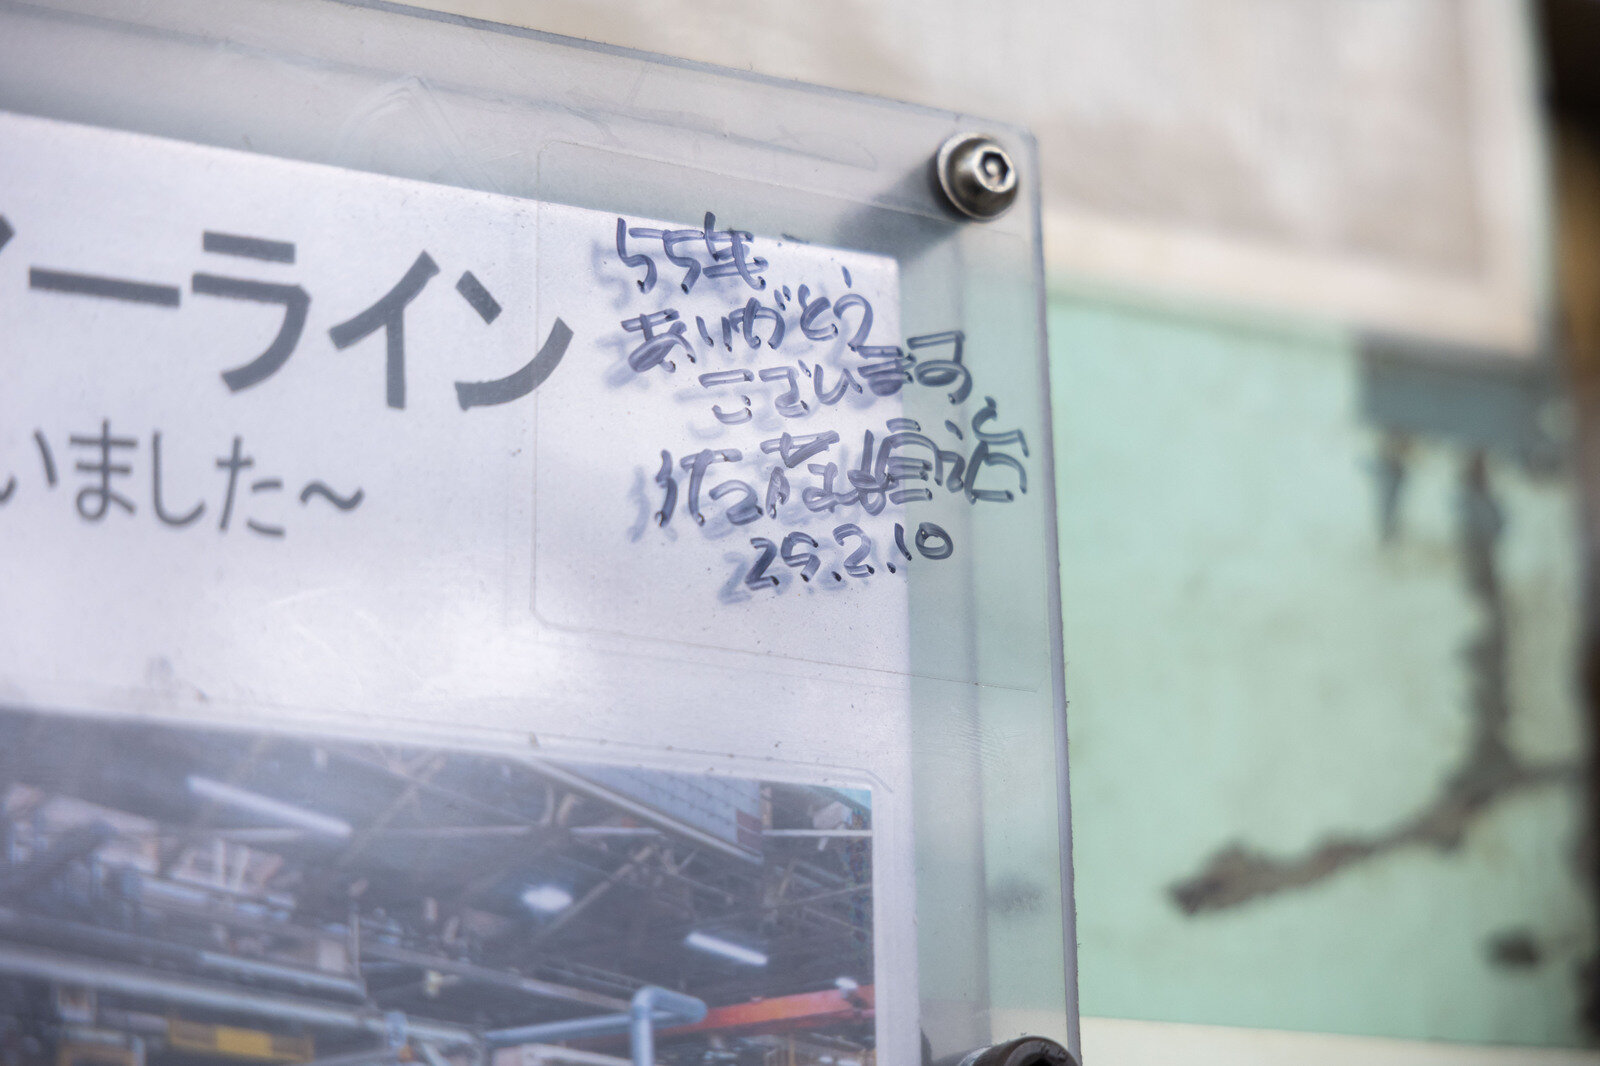 ーライン
いました～
55年
ありがとう
ございます
29.2.10